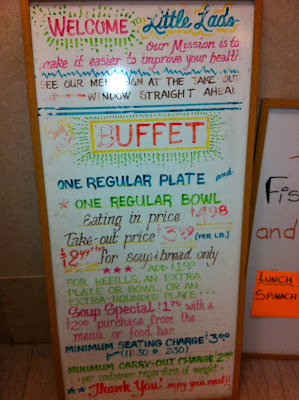 WELCOME to Little Lad's
Our Mission is to
make it easier to improve your health!
SEE OUR MENU SIGN AT THE TAKE OUT
WINDOW STRAIGHT AHEAD!
BUFFET
ONE REGULAR PLATE and
★ ONE REGULAR BOWL
Eating in price $4.98
Take-out price $3.69 (PER LB.)
for soup & bread only
★★★ ADD
FOR REFILLS, AN EXTRA
PLATE OR BOWL, OR AN
EXTRA-ROUNDED PLATE
Soup Special $1.75 with a
$2.00 purchase from the
menu or food bar
MINIMUM SEATING CHARGE $3.00
(11:30 - 2:30)
MINIMUM CARRY-OUT CHARGE $2.00
per container regardless of weight
★★ Thank You! enjoy your meal!!
Fis
and
LUNCH
SPINACH